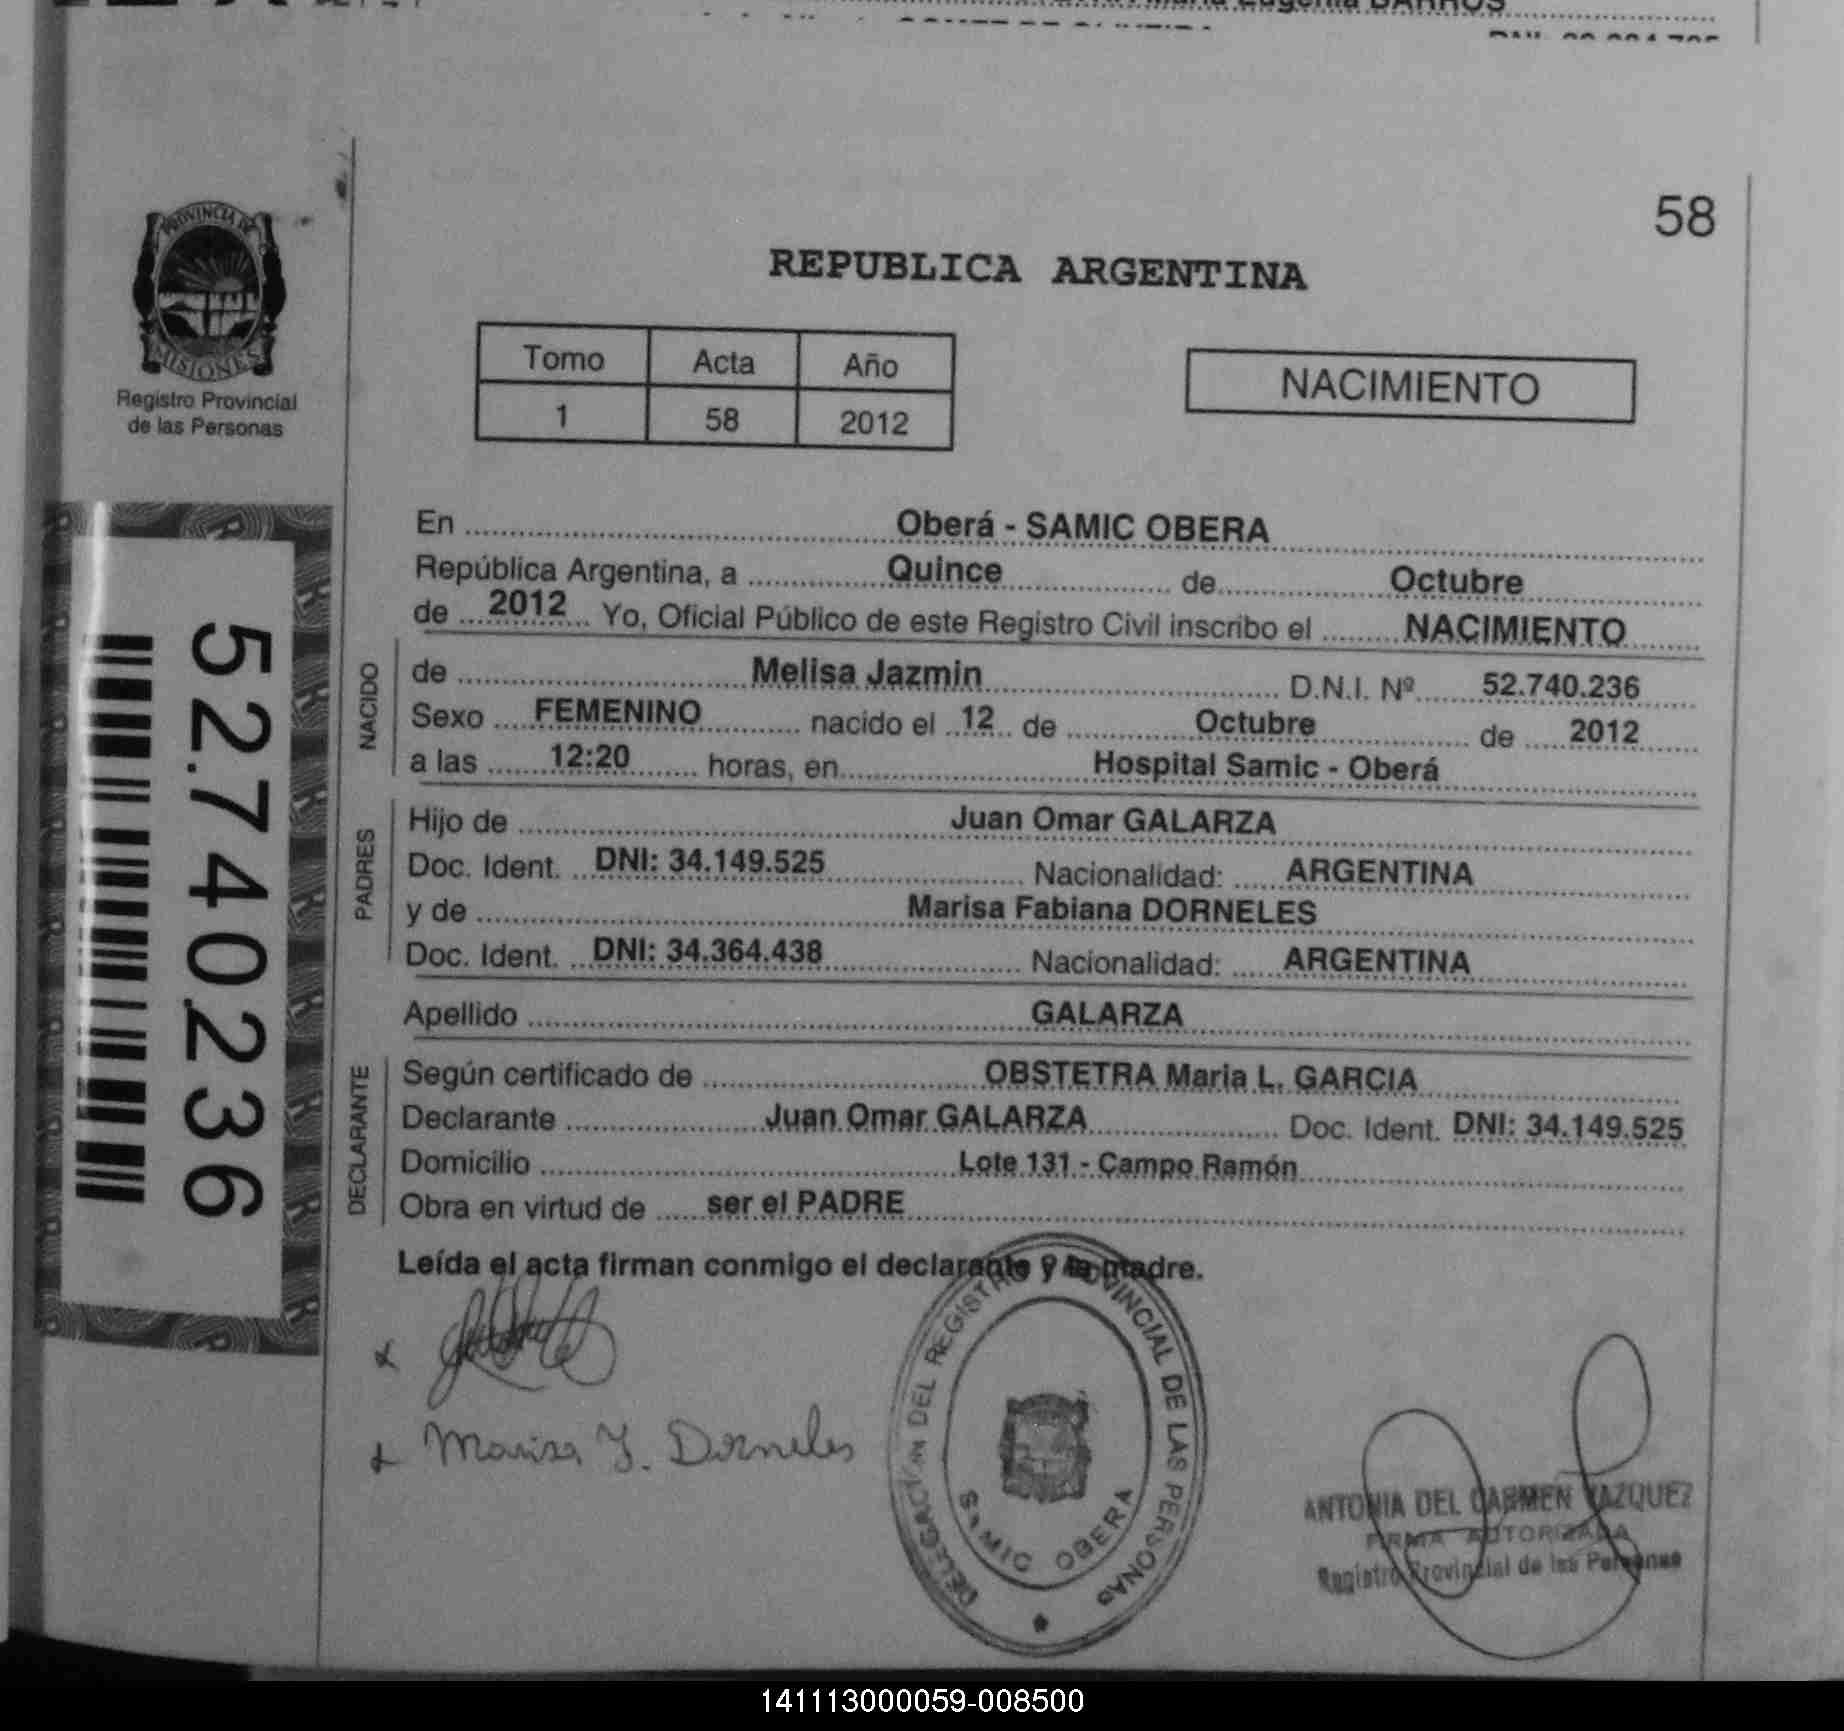 Maria Eugenia BARROS
58
PROVINCIA DE
MISIONES
Registro Provincial
de las Personas
REPUBLICA ARGENTINA
Tomo Acta Año
1 58 2012
NACIMIENTO
52.740.236
En Oberá - SAMIC OBERA
República Argentina, a Quince de Octubre
de 2012 Yo, Oficial Público de este Registro Civil inscribo el NACIMIENTO
NACIDO
de Melisa Jazmin D.N.I. Nº 52.740.236
Sexo FEMENINO nacido el 12 de Octubre de 2012
a las 12:20 horas, en Hospital Samic - Oberá
PADRES
Hijo de Juan Omar GALARZA
Doc. Ident. DNI: 34.149.525 Nacionalidad: ARGENTINA
y de Marisa Fabiana DORNELES
Doc. Ident. DNI: 34.364.438 Nacionalidad: ARGENTINA
Apellido GALARZA
DECLARANTE
Según certificado de OBSTETRA Maria L. GARCIA
Declarante Juan Omar GALARZA Doc. Ident. DNI: 34.149.525
Domicilio Lote 131 - Campo Ramón
Obra en virtud de ser el PADRE
Leída el acta firman conmigo el declarante y la madre.
Marisa F. Dorneles
DELEGACIÓN DEL REGISTRO PROVINCIAL DE LAS PERSONAS
SAMIC OBERA
ANTONIA DEL CARMEN VAZQUEZ
FIRMA AUTORIZADA
Registro Provincial de las Personas
141113000059-008500